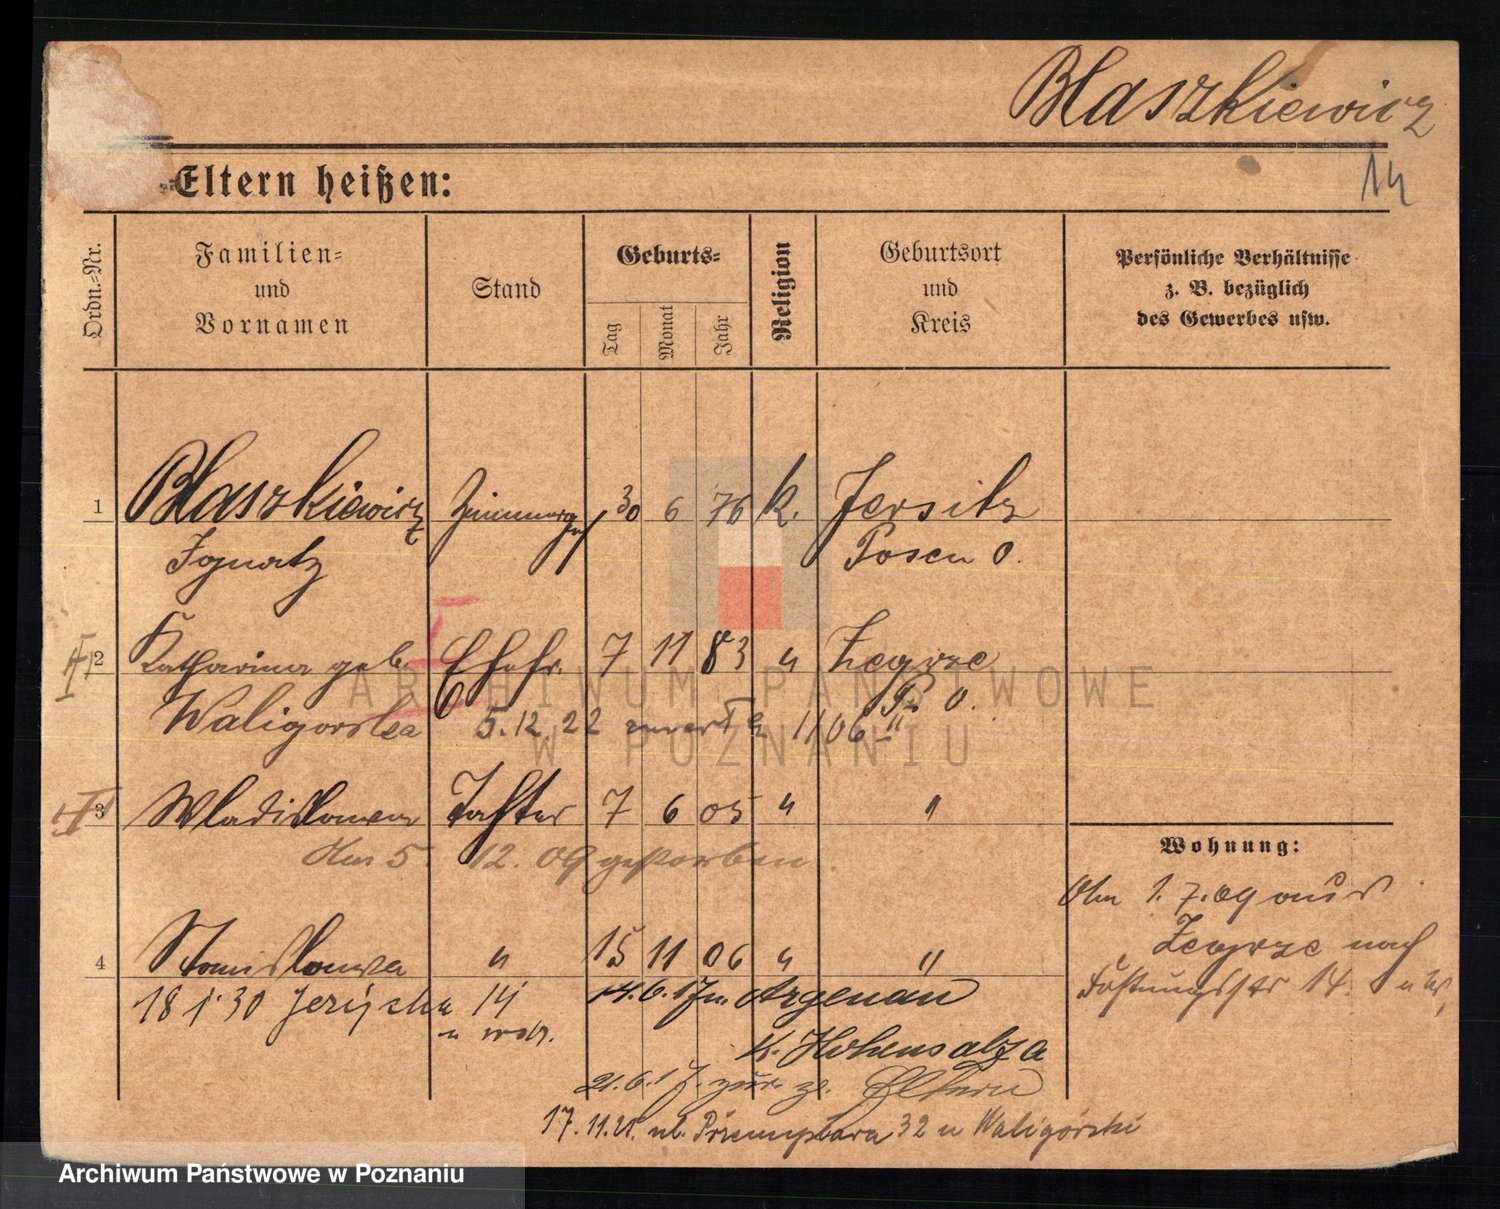 Błaszkiewicz
14
Eltern heißen:
Ordn.-Nr.
Familien-
und
Vornamen
Stand
Geburts-
Tag
Monat
Jahr
Religion
Geburtsort
und
Kreis
Persönliche Verhältnisse
z. B. bezüglich
des Gewerbes usw.
1 Błaszkiewicz 30 6 76 k. Jersitz
Ignatz Posen O.
2 Katharina geb. Ehefr. 7 11 83 " Zegrze
Waligorska Ps. O.
5.12.22
3 Wladislawa Tochter 7 6 05 " "
Am 5. 12. 09 gestorben
Wohnung:
Am 1. 7. 09 aus
Zegrze nach
14.
4 Stanislawa " 15 11 06 " "
18 1. 30 14 14.6.17 Argenau
K. Hohensalza
21.6.17. zur. z. Eltern
17. 11. 21. ul. Przemysłowa 32 u Waligórski
ARCHIWUM PAŃSTWOWE
W POZNANIU
Archiwum Państwowe w Poznaniu